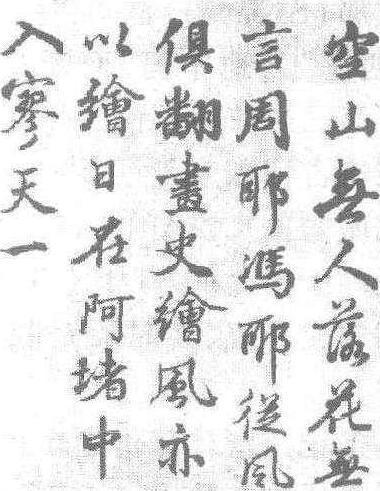 空山無人落花無
言周耶馮耶從風
俱翻畫史繪風亦
以繪日在阿堵中
入寥天一